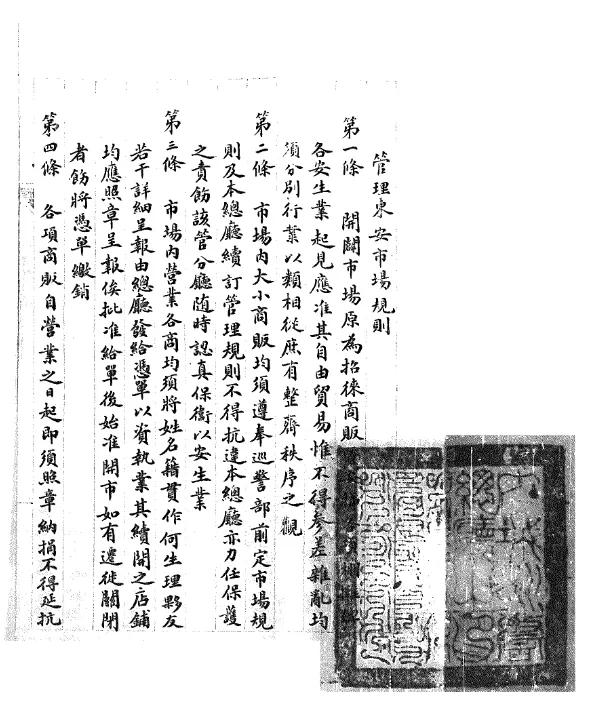 管理東安市場規則
第一條 開闢市場原為招徠商販
各安生業起見應准其自由貿易惟不得參差雜亂均
須分別行業以類相從庶有整齊秩序之觀
第二條 市場內大小商販均須遵奉巡警部前定市場規
則及本總廳續訂管理規則不得抗違本總廳亦力任保護
之責飭該管分廳随時認真保衛以安生業
第三條 市場內營業各商均須將姓名籍貫作何生理夥友
若干詳細呈報由總廳發給憑單以資執業其續開之店鋪
均應照章呈報俟批准給單後始准開市如有遷徙關閉
者飭將憑單繳銷
第四條 各項商販自營業之日起即須照章納捐不得延抗